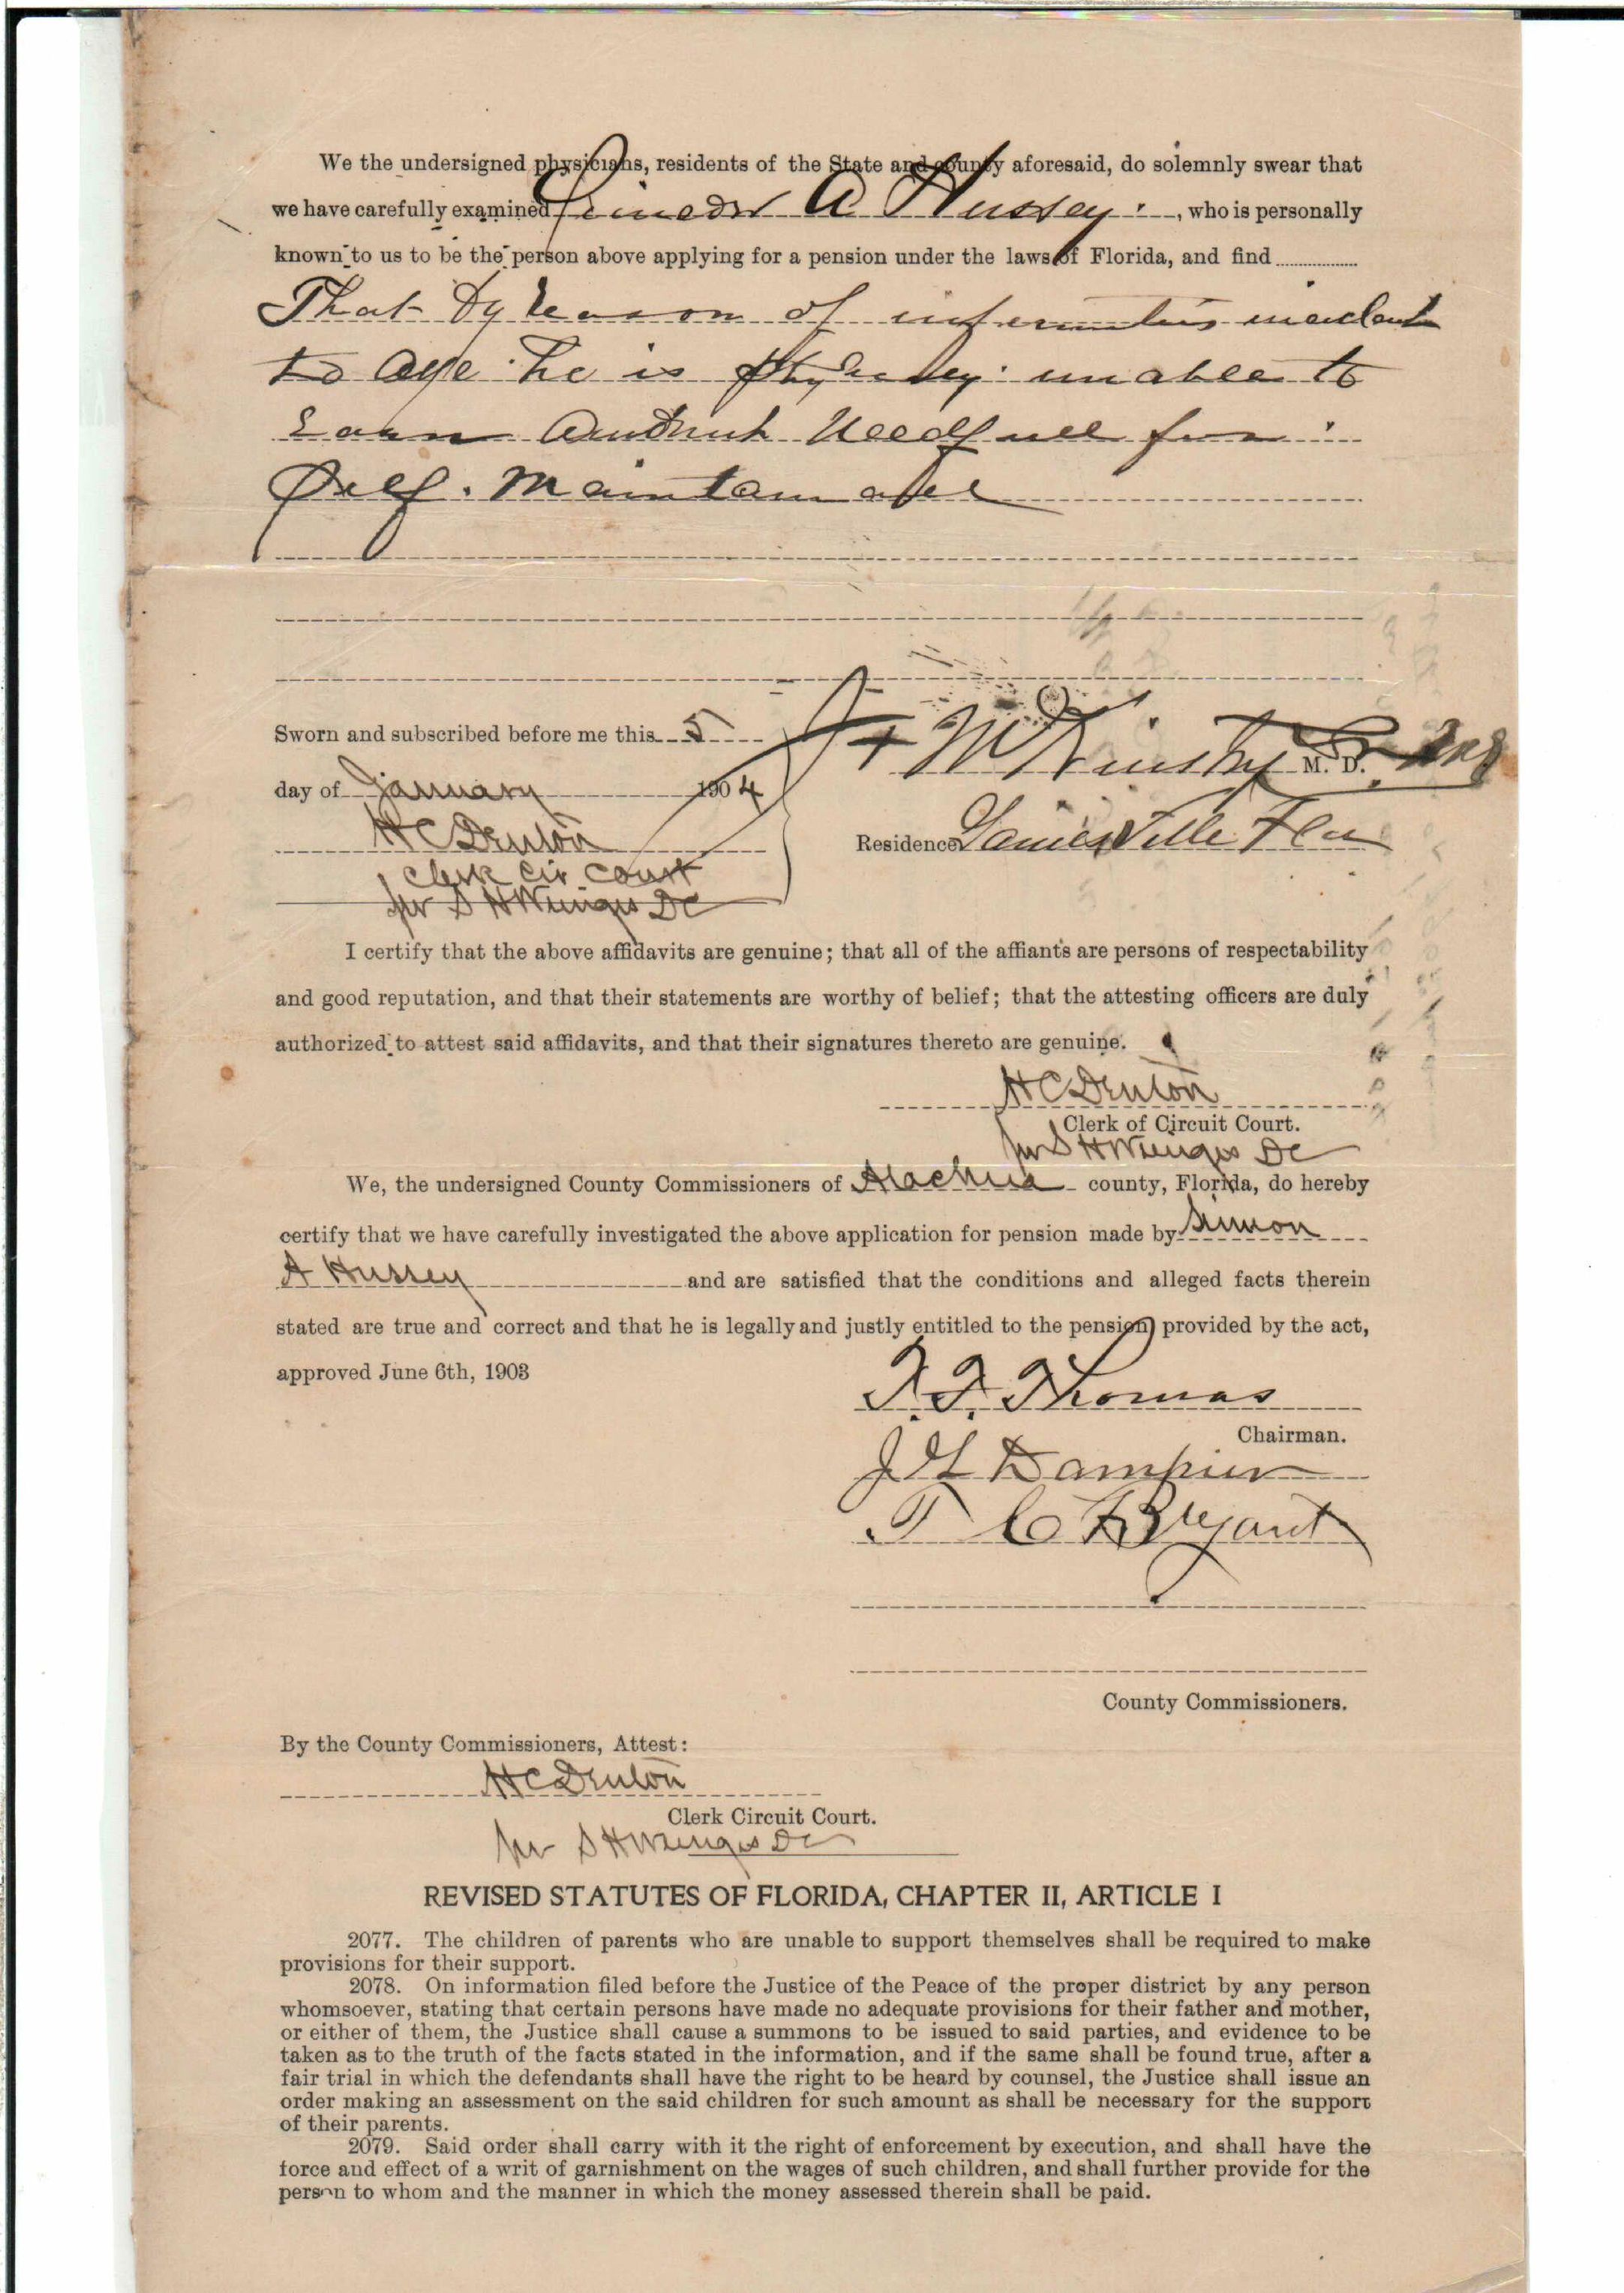 We the undersigned physicians, residents of the State and county aforesaid, do solemnly swear that
we have carefully examined A Hussey, who is personally
known to us to be the person above applying for a pension under the laws of Florida, and find
That by reason of infirmities incident
to age he is unable to
Earn Needfull for
Self. Maintainance
Sworn and subscribed before me this 5
day of January 1904
M. D.
H C Denton
Residence Gainesville Fla
Clerk Cir Court
per S H Wienges DC
I certify that the above affidavits are genuine; that all of the affiants are persons of respectability
and good reputation, and that their statements are worthy of belief; that the attesting officers are duly
authorized to attest said affidavits, and that their signatures thereto are genuine.
H C Denton
Clerk of Circuit Court.
per S H Wienges DC
We, the undersigned County Commissioners of Alachua county, Florida, do hereby
certify that we have carefully investigated the above application for pension made by Simeon
A Hussey and are satisfied that the conditions and alleged facts therein
stated are true and correct and that he is legally and justly entitled to the pension provided by the act,
approved June 6th, 1903
F. F. Thomas
Chairman.
J G Dampier
T C Bryant
County Commissioners.
By the County Commissioners, Attest:
H C Denton
Clerk Circuit Court.
per S H Wienges DC
REVISED STATUTES OF FLORIDA, CHAPTER II, ARTICLE I
2077. The children of parents who are unable to support themselves shall be required to make
provisions for their support.
2078. On information filed before the Justice of the Peace of the proper district by any person
whomsoever, stating that certain persons have made no adequate provisions for their father and mother,
or either of them, the Justice shall cause a summons to be issued to said parties, and evidence to be
taken as to the truth of the facts stated in the information, and if the same shall be found true, after a
fair trial in which the defendants shall have the right to be heard by counsel, the Justice shall issue an
order making an assessment on the said children for such amount as shall be necessary for the support
of their parents.
2079. Said order shall carry with it the right of enforcement by execution, and shall have the
force and effect of a writ of garnishment on the wages of such children, and shall further provide for the
person to whom and the manner in which the money assessed therein shall be paid.